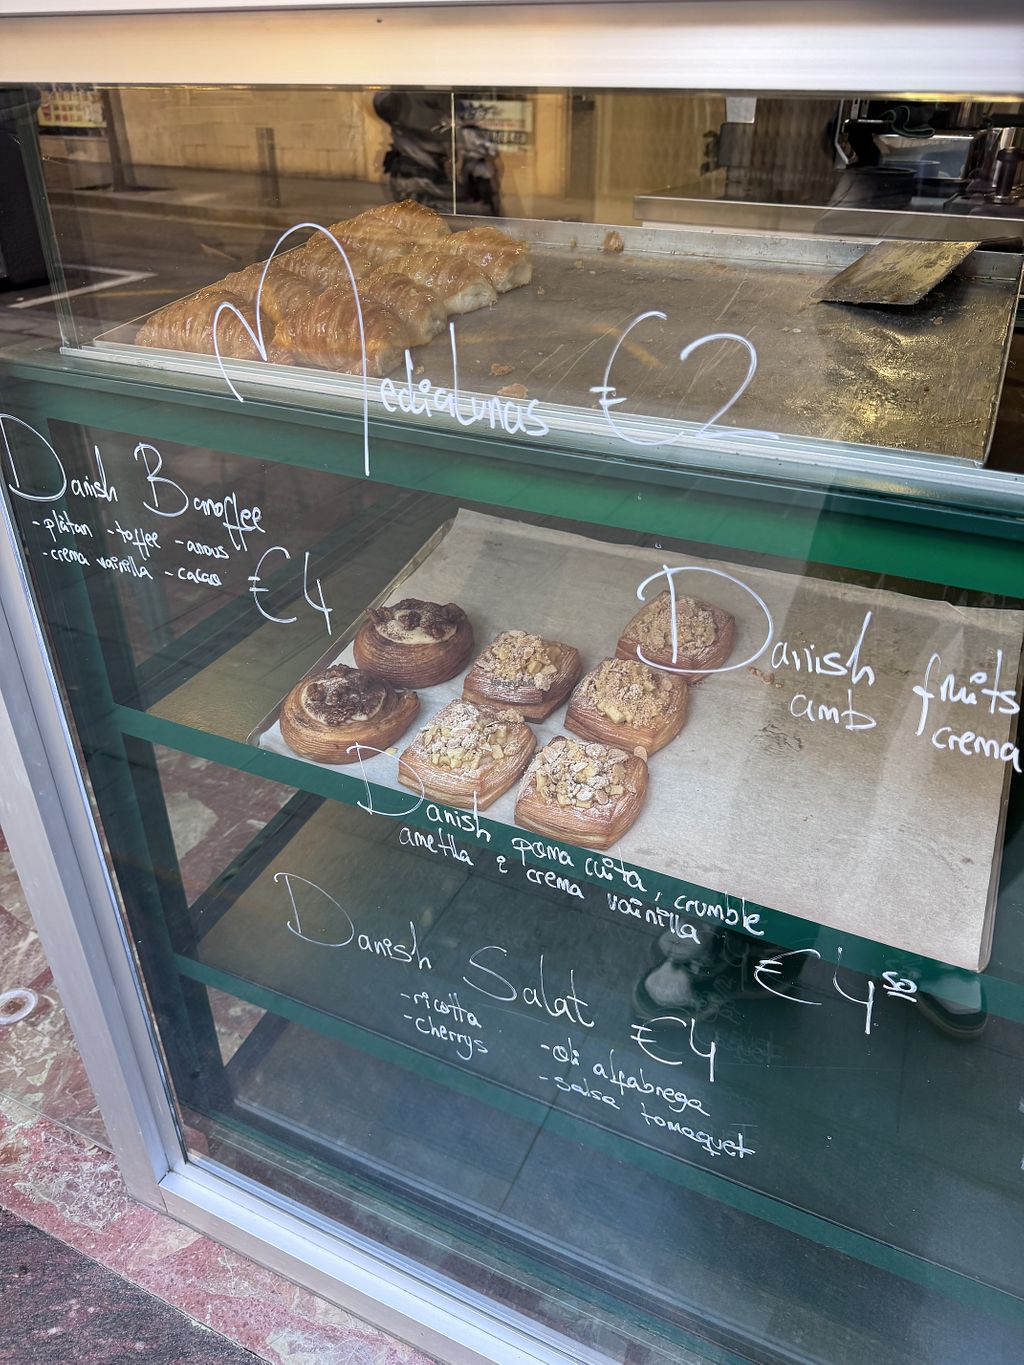 Medialunas €2
Danish Banoffee
- plàtan - toffee - anous
- crema vainilla - cacao
€4
Danish fruits
amb crema
Danish poma cuita, crumble
ametlla i crema vainilla
€4,50
Danish Salat €4
- ricotta
- cherrys
- oli alfabrega
- salsa tomaquet